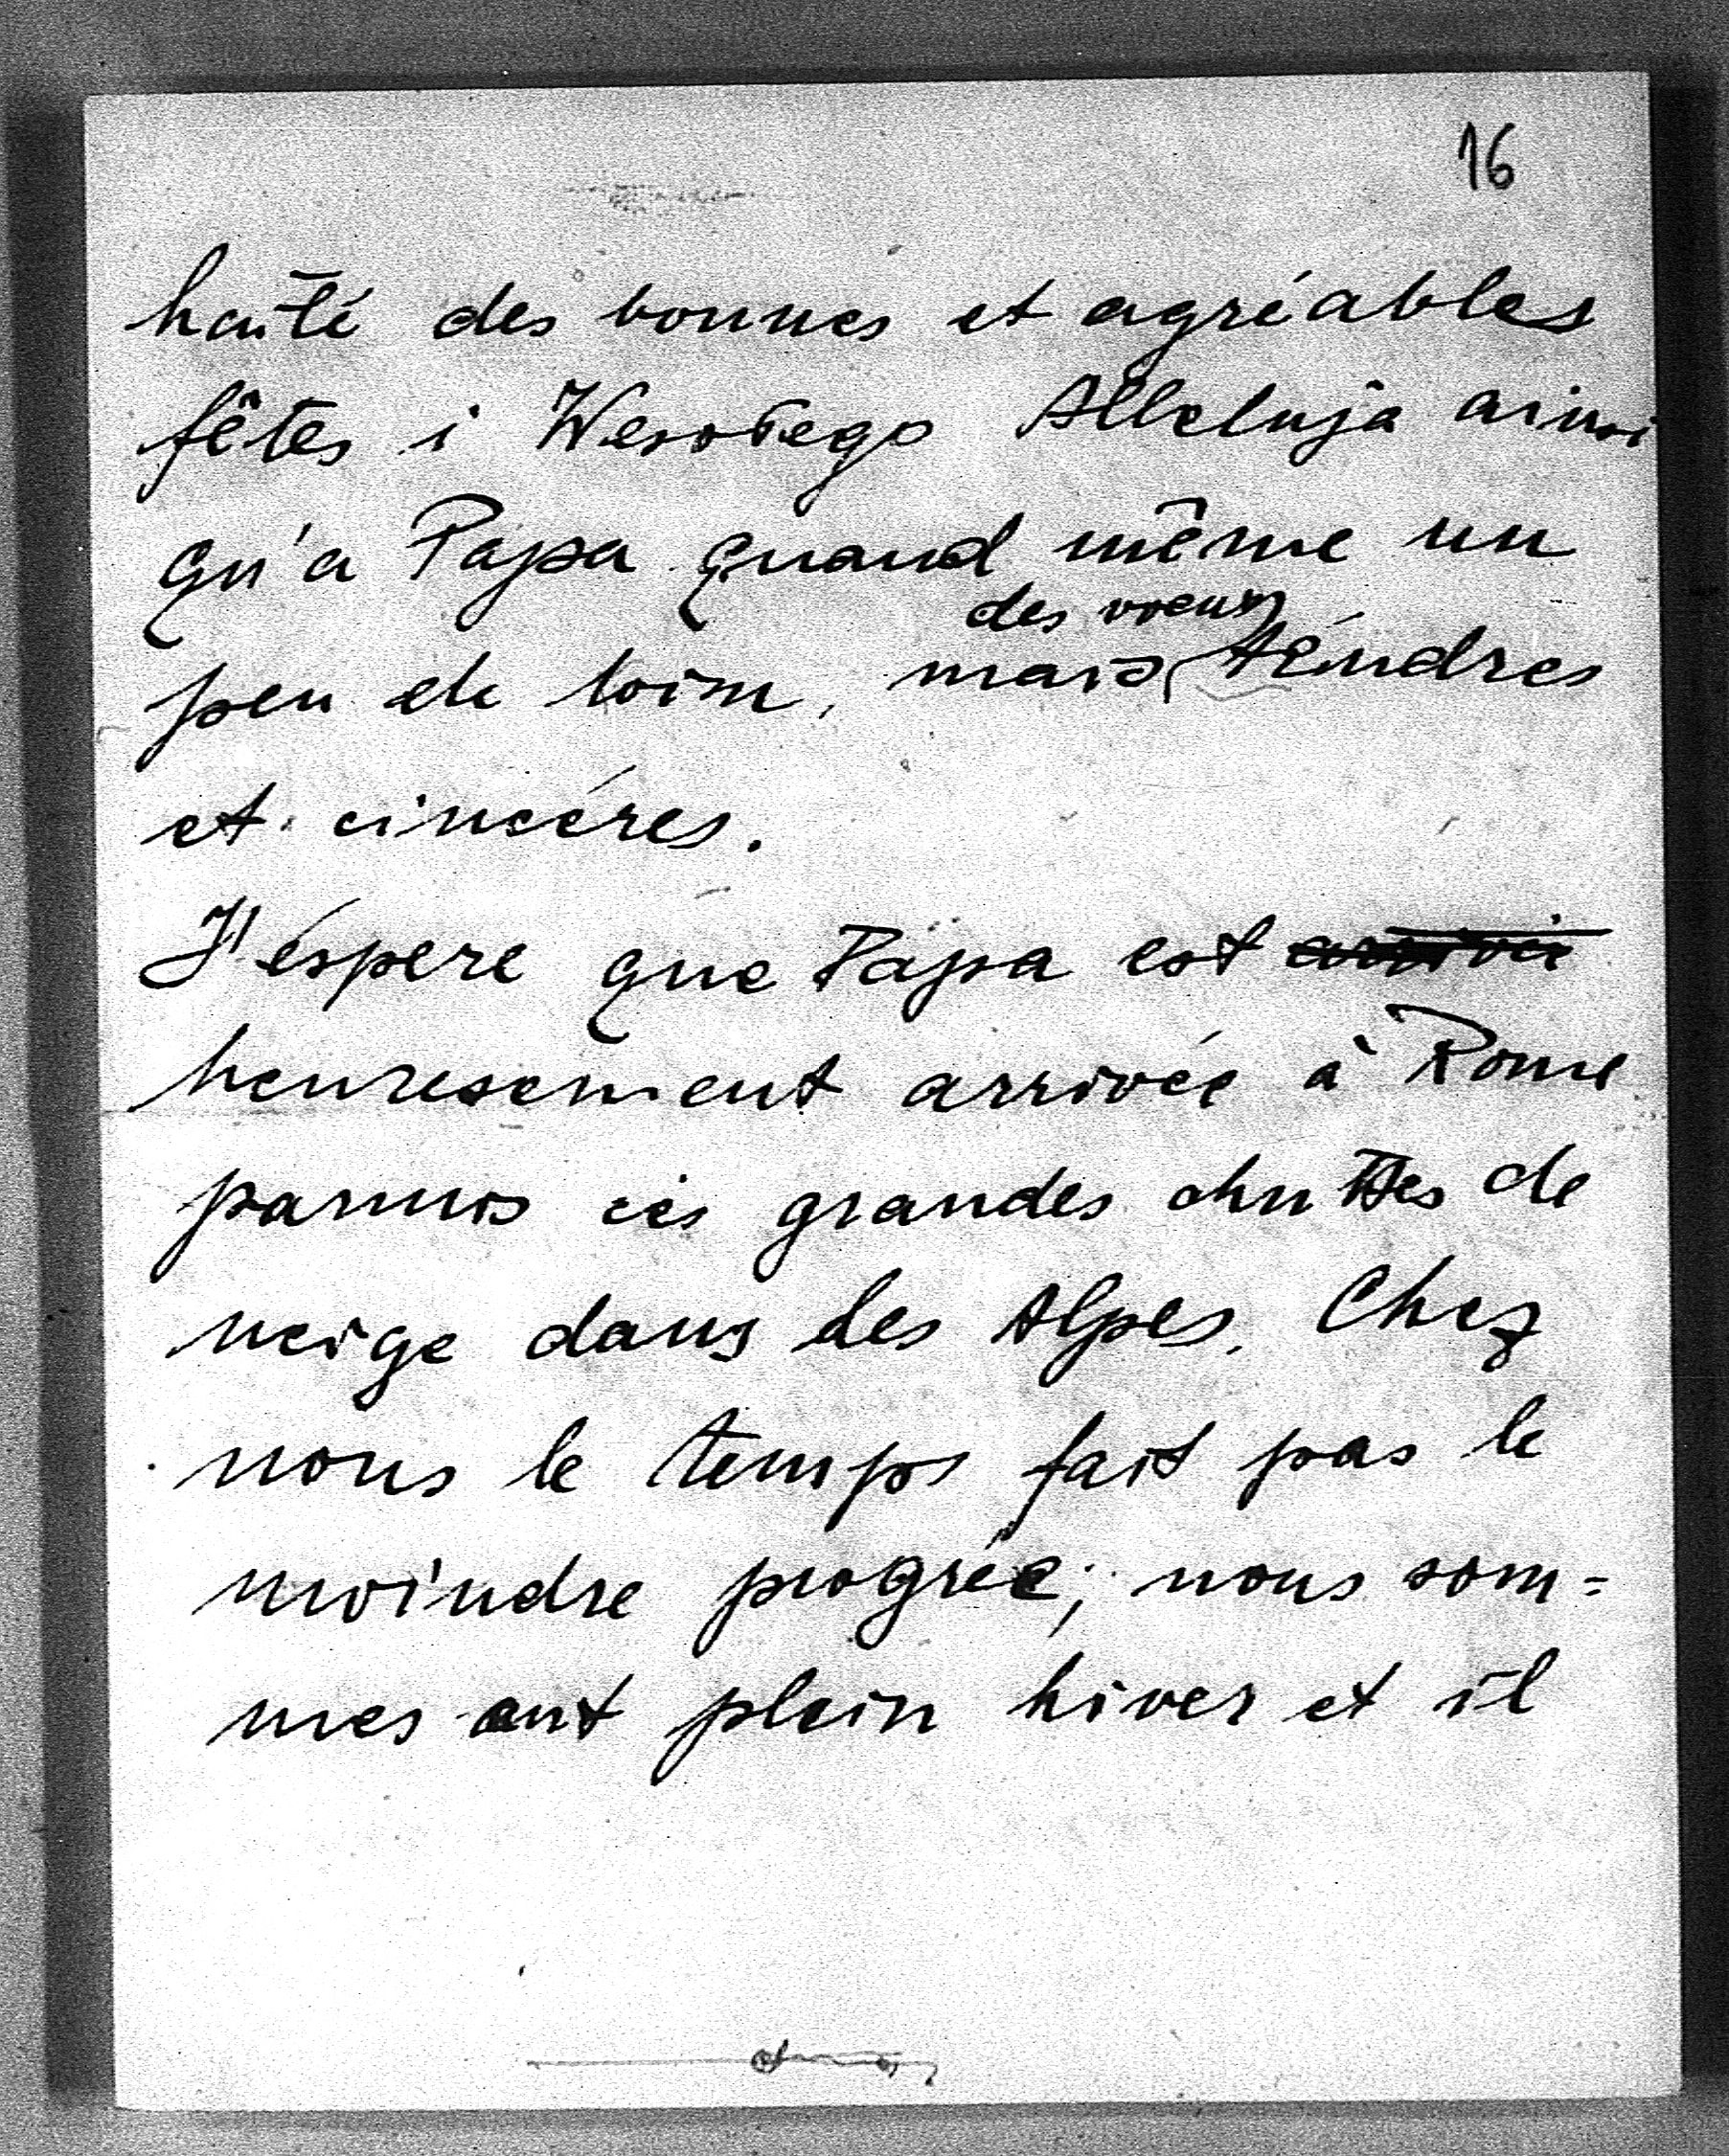 16
haité des bonnes et agréables
fêtes i Wesołego Alleluja ainsi
qu'a Papa quand même un
des voeux
peu de loin, mais tendres
et cincéres.
J'éspere que Papa est arrivée
heuresement arrivée à Rome
parmis ces grandes chuttes de
neige dans les Alpes. Chez
nous le temps fait pas le
moindre progrée; nous som=
mes ent plein hiver et il